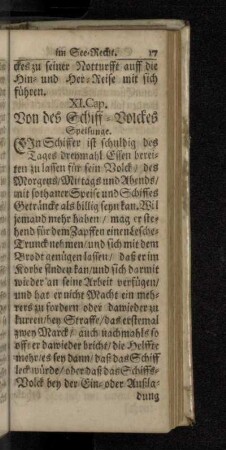 im See-Recht. 17
ckes zu seiner Notturfft auff die
Hin- und Her-Reise mit sich
führen.
XI. Cap.
Von des Schiff-Volckes
Speisunge.
EIn Schiffer ist schuldig des
Tages dreymahl Essen berei-
ten zu lassen für sein Volck / des
Morgens / Mittags und Abends /
mit sothaner Speise und Schiffes
Geträncke als billig seyn kan. Wil
jemand mehr haben / mag er ste-
hend für dem Zapffen einen Lesche-
Trunck nehmen / und sich mit dem
Brodt genügen lassen / daß er im
Korbe finden kan / und sich darmit
wieder an seine Arbeit verfügen /
und hat er nicht Macht ein meh-
rers zu fordern oder dawieder zu
kurren / bey Straffe / das erstemal
zwey Marck / auch nachmahls so
offt er dawieder bricht / die Helffte
mehr / es sey dann / daß das Schiff
leck würde / oder daß das Schiffs-
Volck bey der Ein- oder Außla-
dung